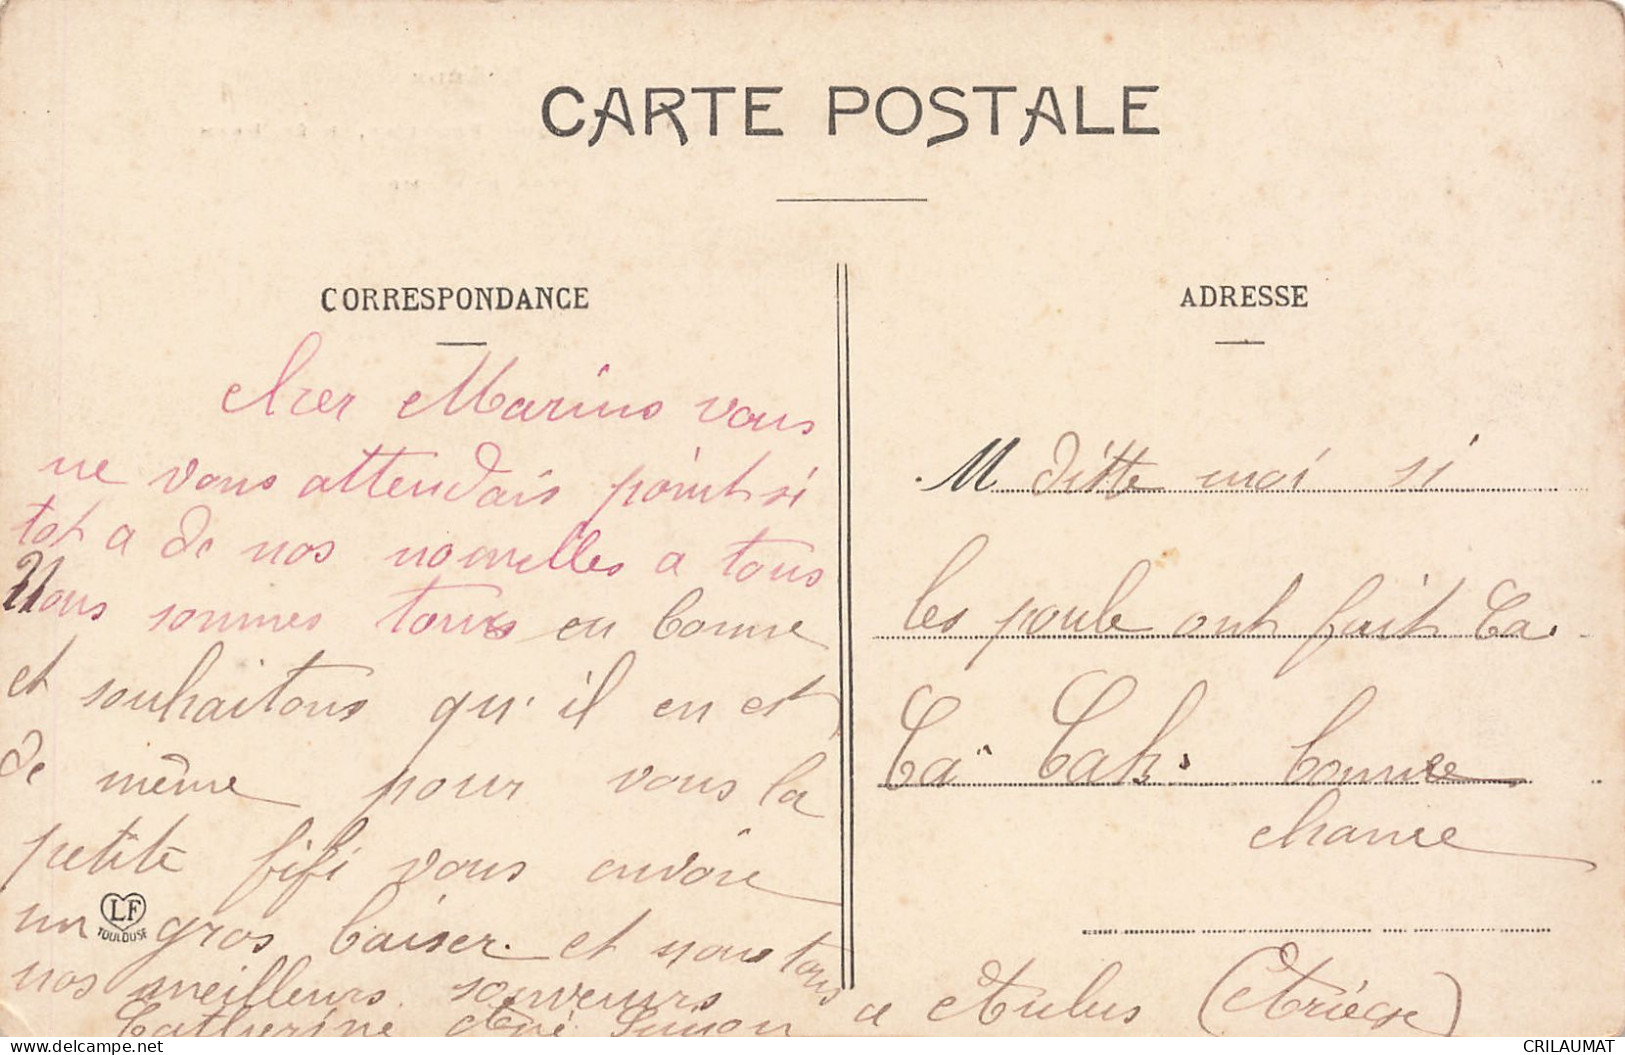 CARTE POSTALE
CORRESPONDANCE
cher Marino vous
ne vous attendais point si
tot a de nos nouvelles a tous
Nous sommes tous en bonne
et souhaitons qu'il en et
de même pour vous la
petite fifi vous envoie
un gros baiser. et nous tous
nos meilleurs souvenirs
Catherine
LF
TOULOUSE
ADRESSE
M ditte moi si
les poule ont fait Ca.
Ca Cak. bonne
chance
a Aulus (Ariège)
CRILAUMAT